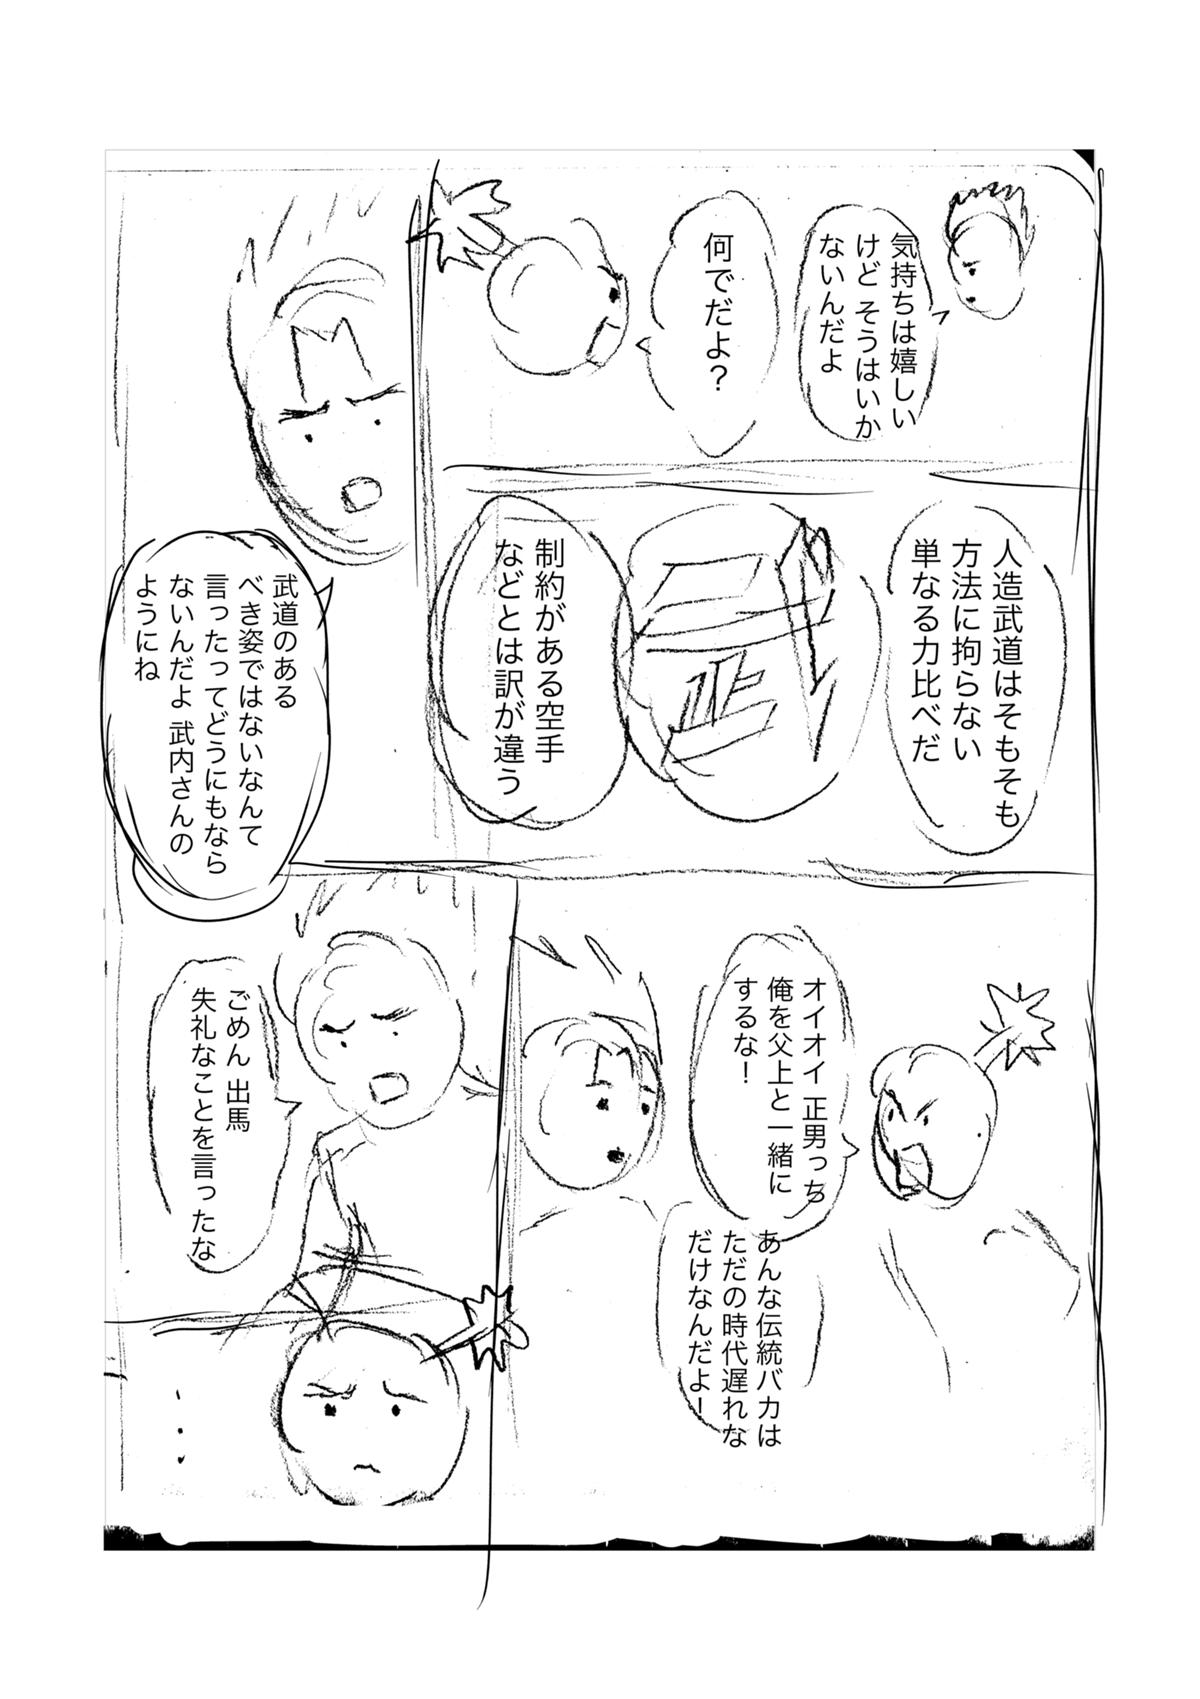 気持ちは嬉しい
けど そうはいか
ないんだよ
何でだよ？
人造武道はそもそも
方法に拘らない
単なる力比べだ
制約がある空手
などとは訳が違う
武道のある
べき姿ではないなんて
言ったってどうにもなら
ないんだよ 武内さんの
ようにね
オイオイ 正男っち
俺を父上と一緒に
するな！
あんな伝統バカは
ただの時代遅れな
だけなんだよ！
ごめん 出馬
失礼なことを言ったな